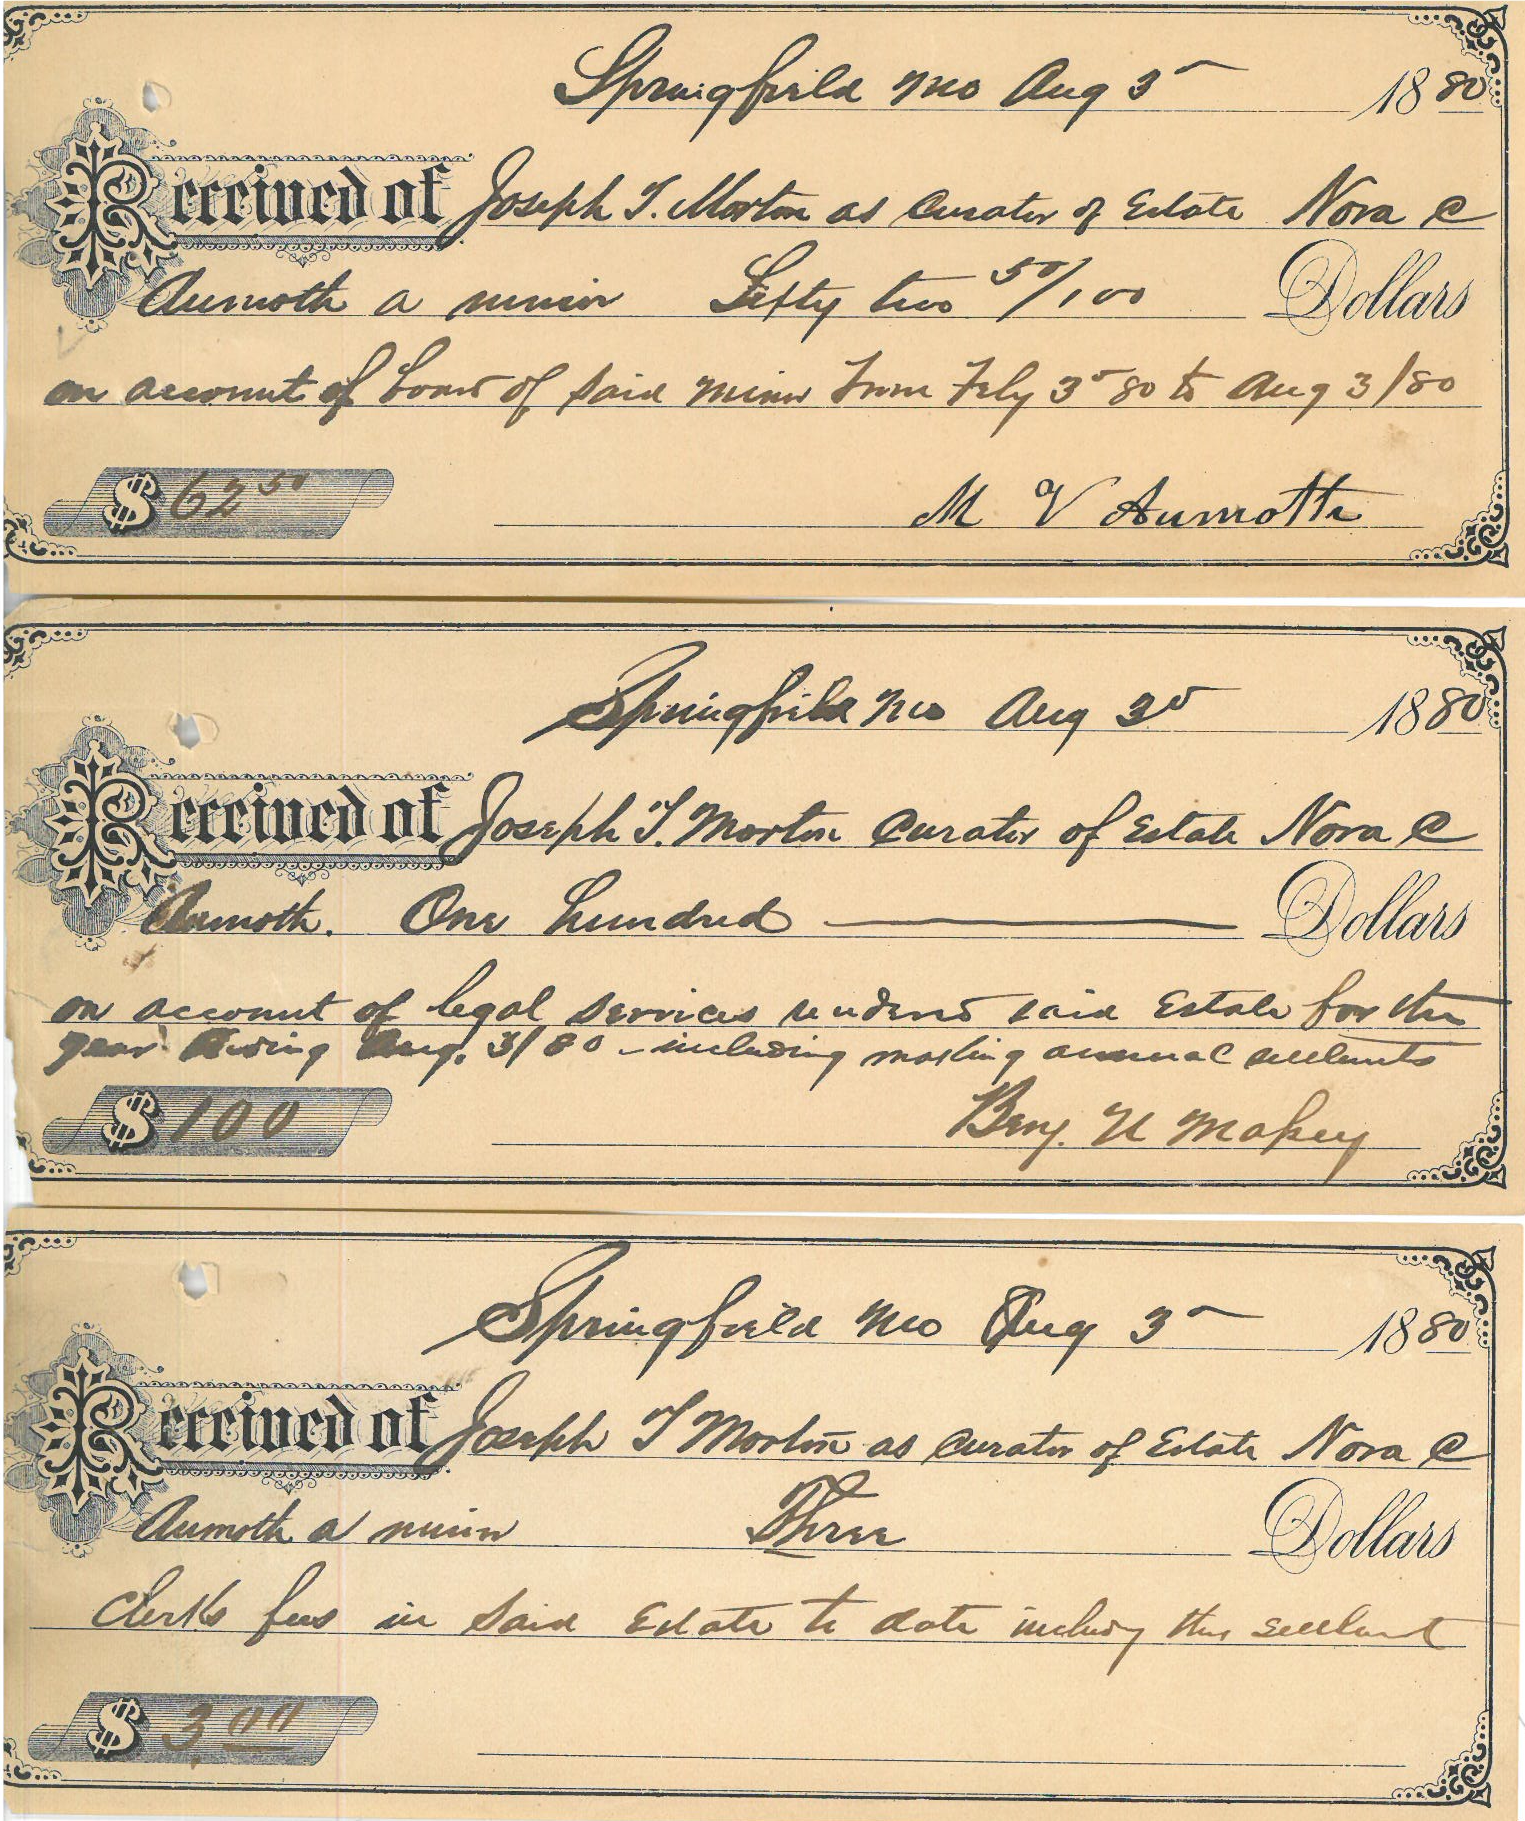 Springfield Mo Aug 3d 1880
Received of Joseph T. Morton as Curator of Estate Nora C
Aumoth a minor Sixty two 50/100 Dollars
on account of board of said minor from Feby 3d 80 to Aug 3/80
$ 62 50 M V Aumoth
Springfield Mo Aug 3d 1880
Received of Joseph T. Morton Curator of Estate Nora C
Aumoth. One hundred Dollars
on account of legal services rendered said Estate for the
year ending Aug. 3/80 - including making annual settlements
$ 100 Benj. U Massey
Springfield Mo Aug 3d 1880
Received of Joseph T Morton as Curator of Estate Nora C
Aumoth a minor Three Dollars
Clerks fees in said Estate to date including this settlement
$ 3.00